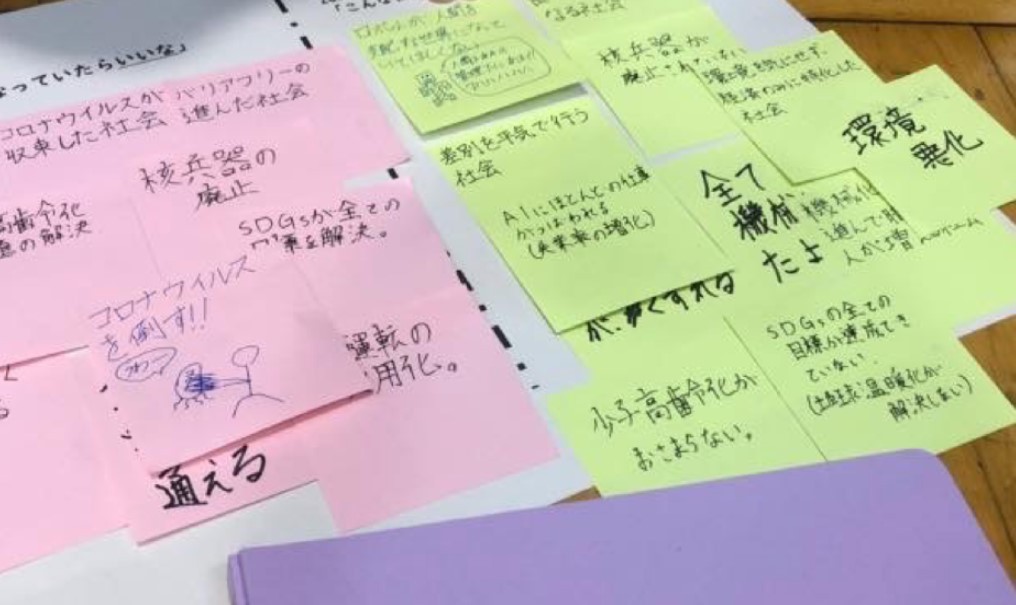 なっていたらいいな」
「こんな
コロナウイルスが
収束した社会
バリアフリーの
進んだ社会
核兵器の
廃止
高齢化
の解決
SDGsが全ての
を解決。
コロナウイルス
を倒す!!
運転の
用化。
通える
ロボットが人間を
支配する世界になって
いてほしくない
なる社会
核兵器が
廃止されていない
環境を気にせず、
経済のみに特化した
社会
環境
悪化
差別を平気で行う
社会
AIにほとんどの仕事
がうばわれる
(失業率の増化)
全て
機械
たよ
機械化
進んで
人が増
SDGsの全ての
目標が達成でき
ていない
(地球温暖化が
解決しない)
少子高齢化が
おさまらない。